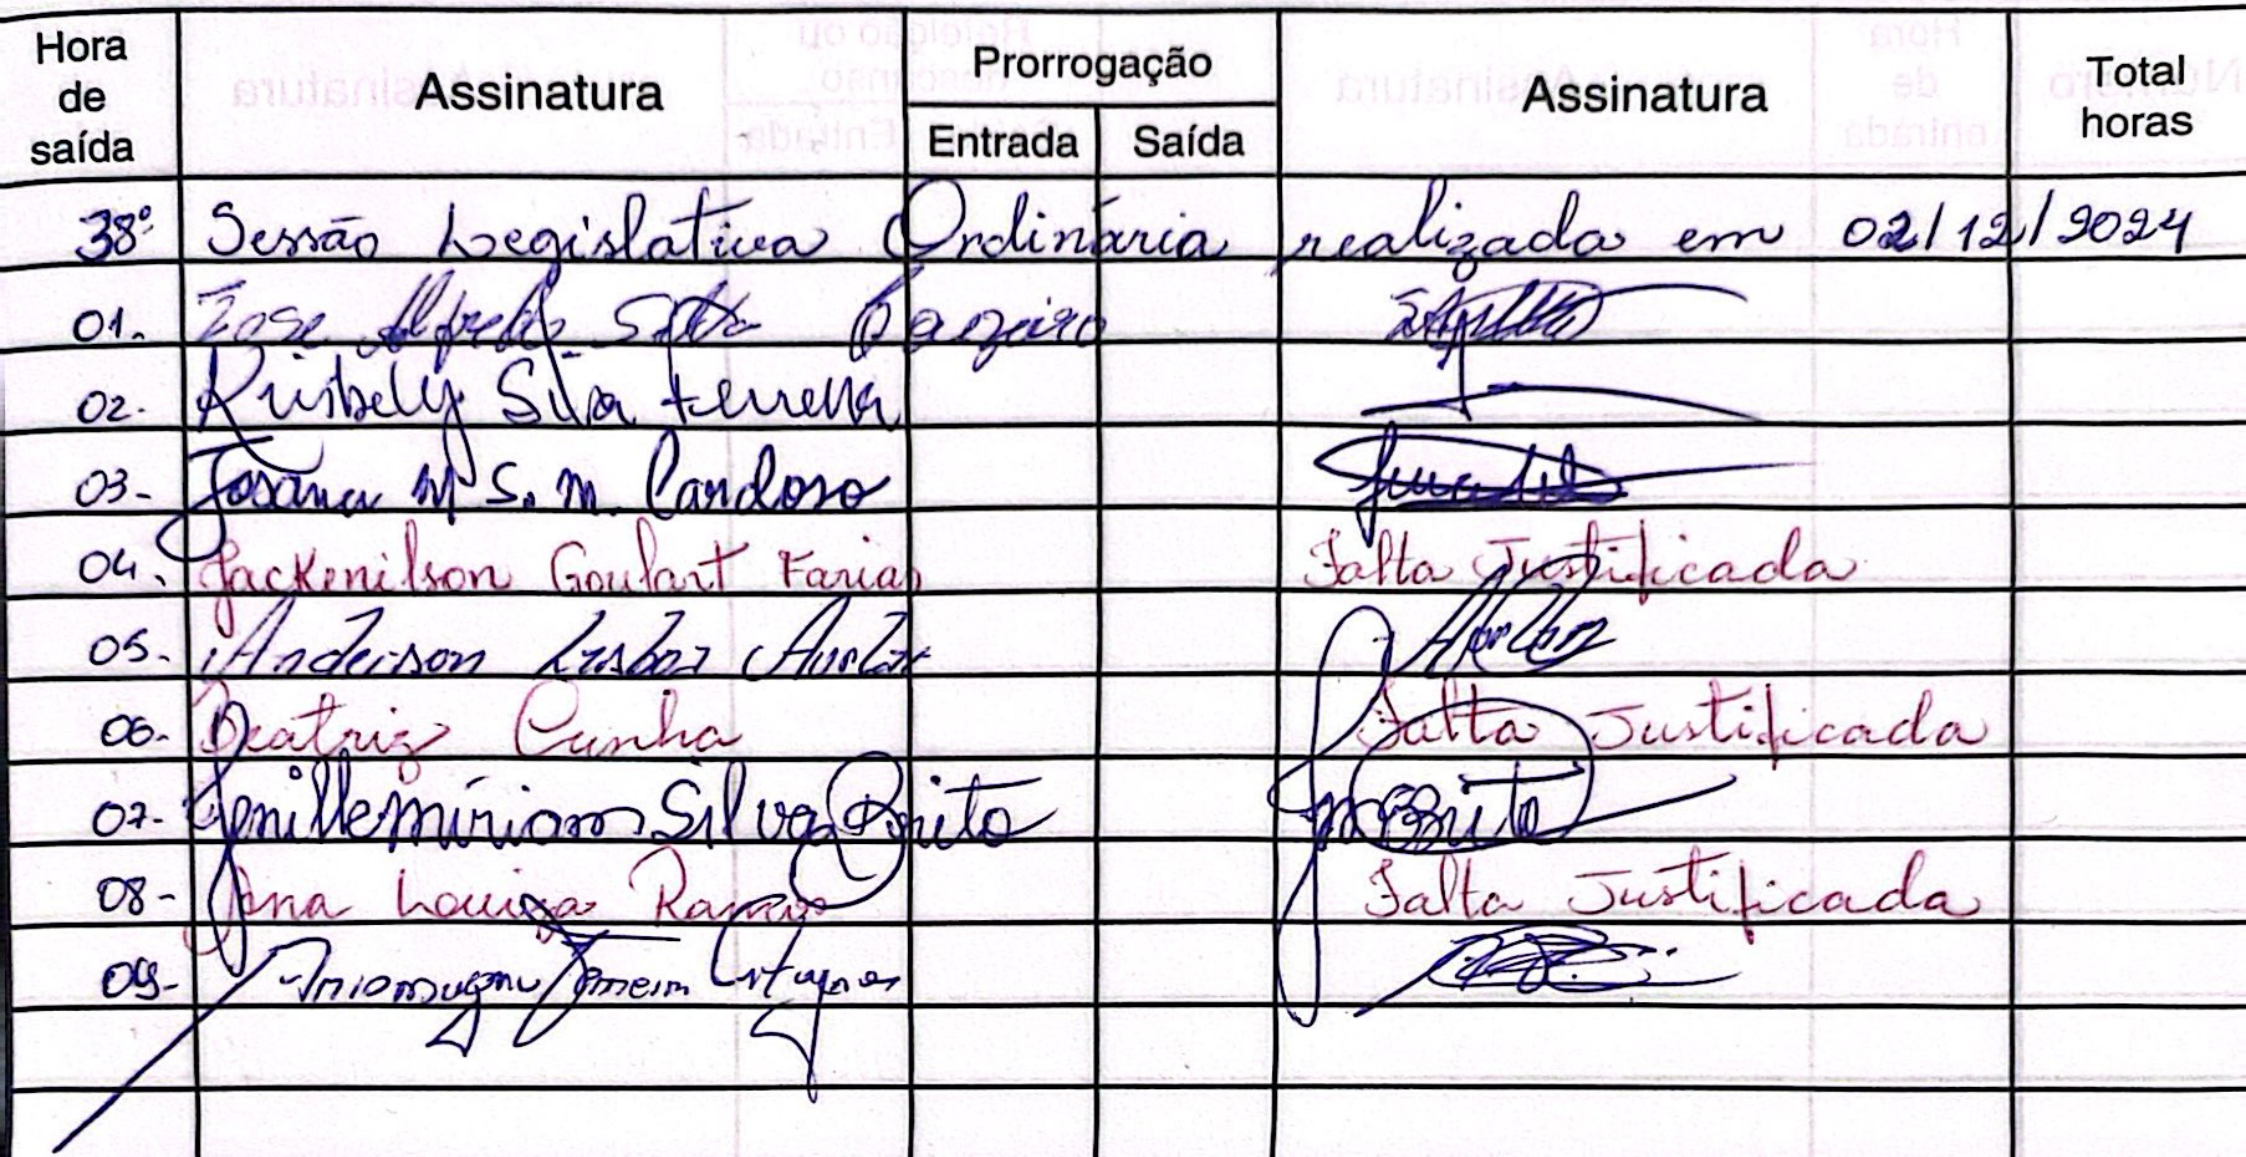 Hora de saída Assinatura Prorrogação Entrada Saída Assinatura Total horas
38ª Sessão Legislativa Ordinária realizada em 02/12/2024
01. José Alfredo Silva
02. Silva Ferreira
03- Josana M S. M. Cardoso
04. Jackenilson Goulart Farias Falta Justificada
05. Anderson Lisboa
06. Beatriz Cunha Falta Justificada
07. Jenille Miriam Silva Brito Brito
08- Ana Louiza Ramos Falta Justificada
09-